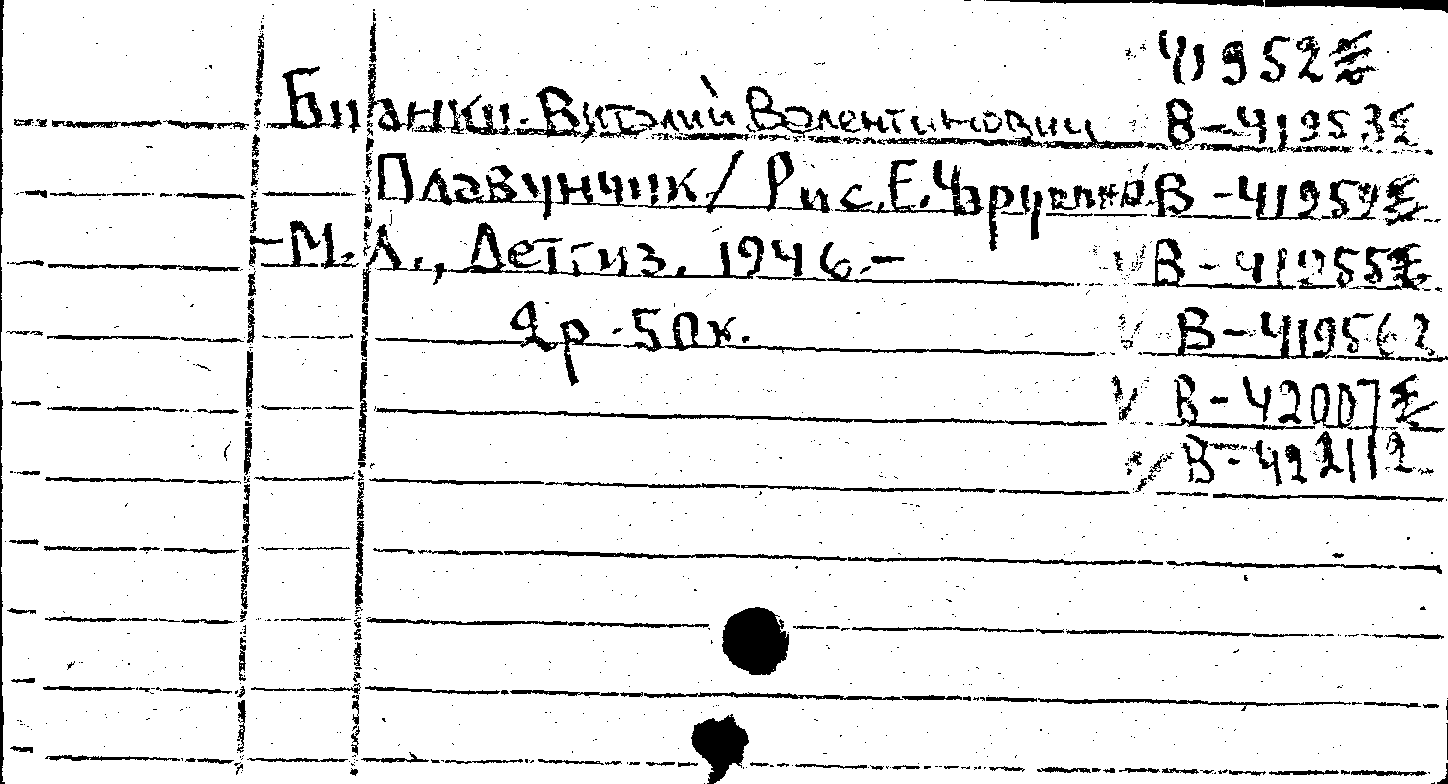 41952
Бианки. Виталий Валентинович В-41953
Плавунчик / Рис. Е. Чарушина. В-41954
-М. Л., Детгиз, 1946.- В-41955
2р. 50к. В-41956
В-42007
В-42211